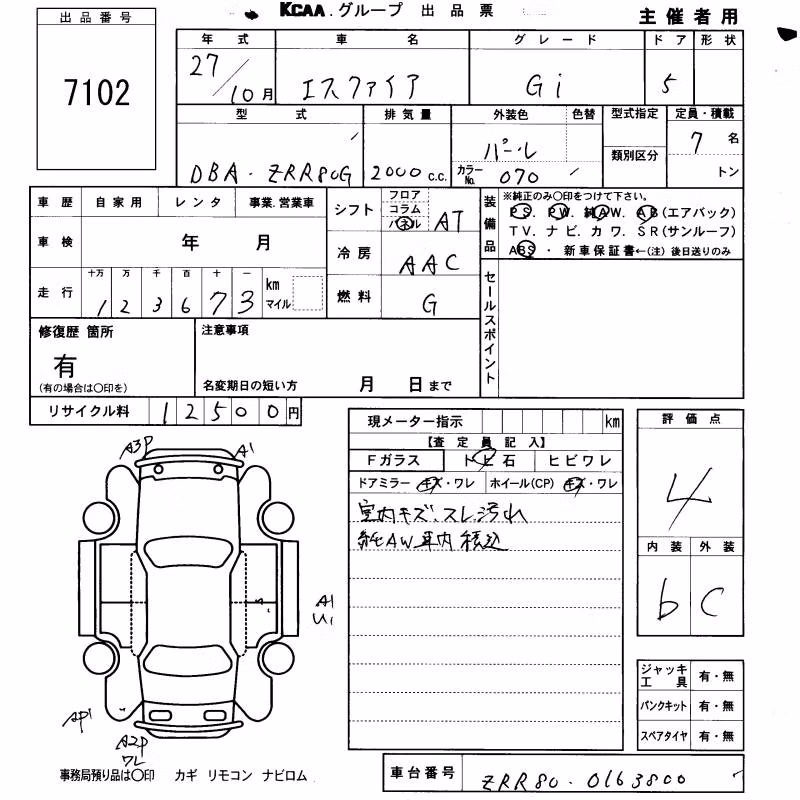 KCAA.グループ 出品票
主催者用
出品番号
7102
年式 車名 グレード ドア 形状
27/10月 エスファイア Gi 5
型式 排気量 外装色 色替 型式指定 定員・積載
DBA・ZRR80G 2000c.c. パール 7名
カラーNo. 070 類別区分 トン
車歴 自家用 レンタ 事業.営業車
シフト フロア コラム パネル AT
車検 年 月
冷房 AAC
走行 十万 万 千 百 十 一
1 2 3 6 7 3 km マイル
燃料 G
装備品
※純正のみ〇印をつけて下さい。
PS. PW. 純AW. AB(エアバック)
TV. ナビ. カワ. SR(サンルーフ)
ABS・新車保証書←(注)後日送りのみ
セールスポイント
修復歴 箇所
有
(有の場合は〇印を)
注意事項
名変期日の短い方 月 日まで
リサイクル料 12500円
現メーター指示 km
【査定員記入】
Fガラス トビ石 ヒビワレ
ドアミラー キズ・ワレ ホイール(CP) キズ・ワレ
室内キズ、スレ、汚れ
純AW車内積込
評価点
4
内装 外装
b C
A3P A1
A1
U1
AP1
A2P
ワレ
ジャッキ工具 有・無
パンクキット 有・無
スペアタイヤ 有・無
事務局預り品は〇印 カギ リモコン ナビロム
車台番号 ZRR80-0163800